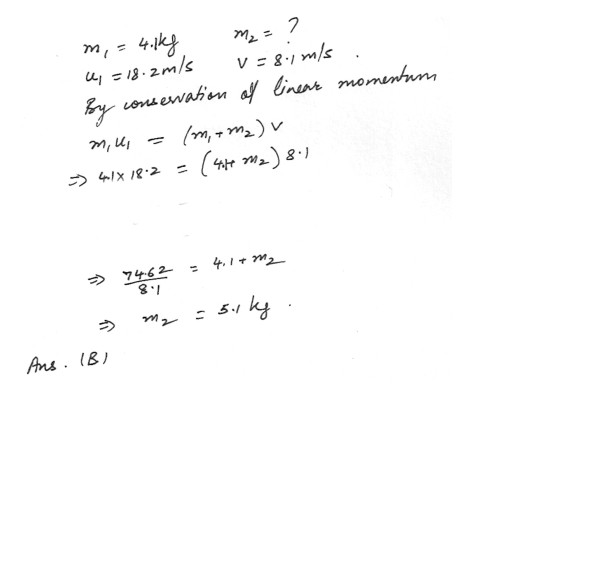 m₁ = 4.1kg m₂ = ?
u₁ = 18.2m/s v = 8.1 m/s .
By conservation of linear momentum
m₁u₁ = (m₁+m₂) v
⇒ 4.1 × 18.2 = (4.1+ m₂) 8.1
⇒ 74.62/8.1 = 4.1 + m₂
⇒ m₂ = 5.1 kg .
Ans. (B)